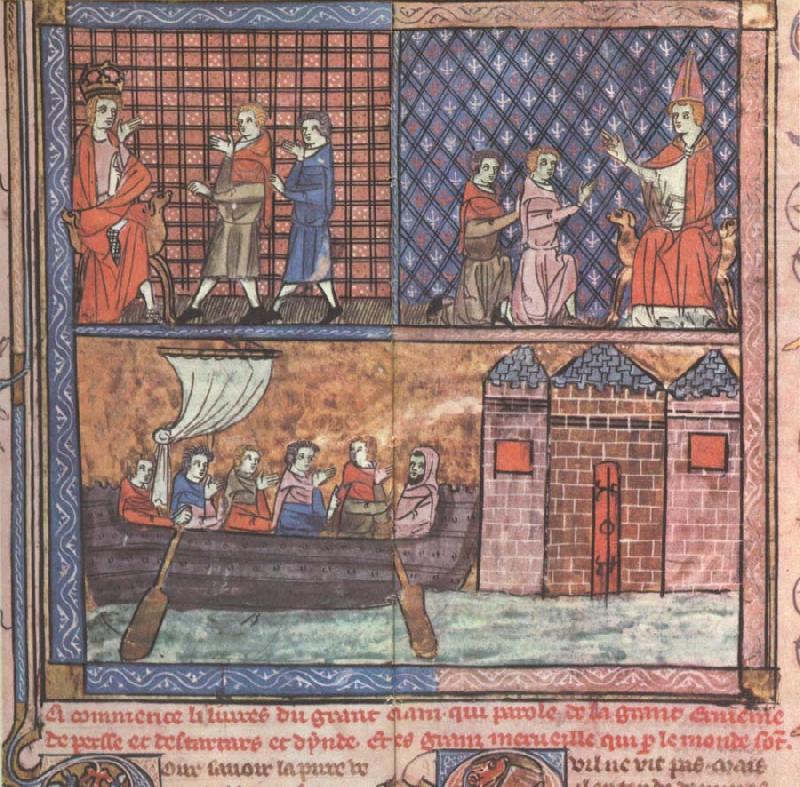 Ci commence li livres du grant caam qui parole de la grant ermenie
de persse et des tartars et dynde. Et es granz merueille qui p le monde sõt.
Our sauoir la pure ve
uil ne vit pas. mais